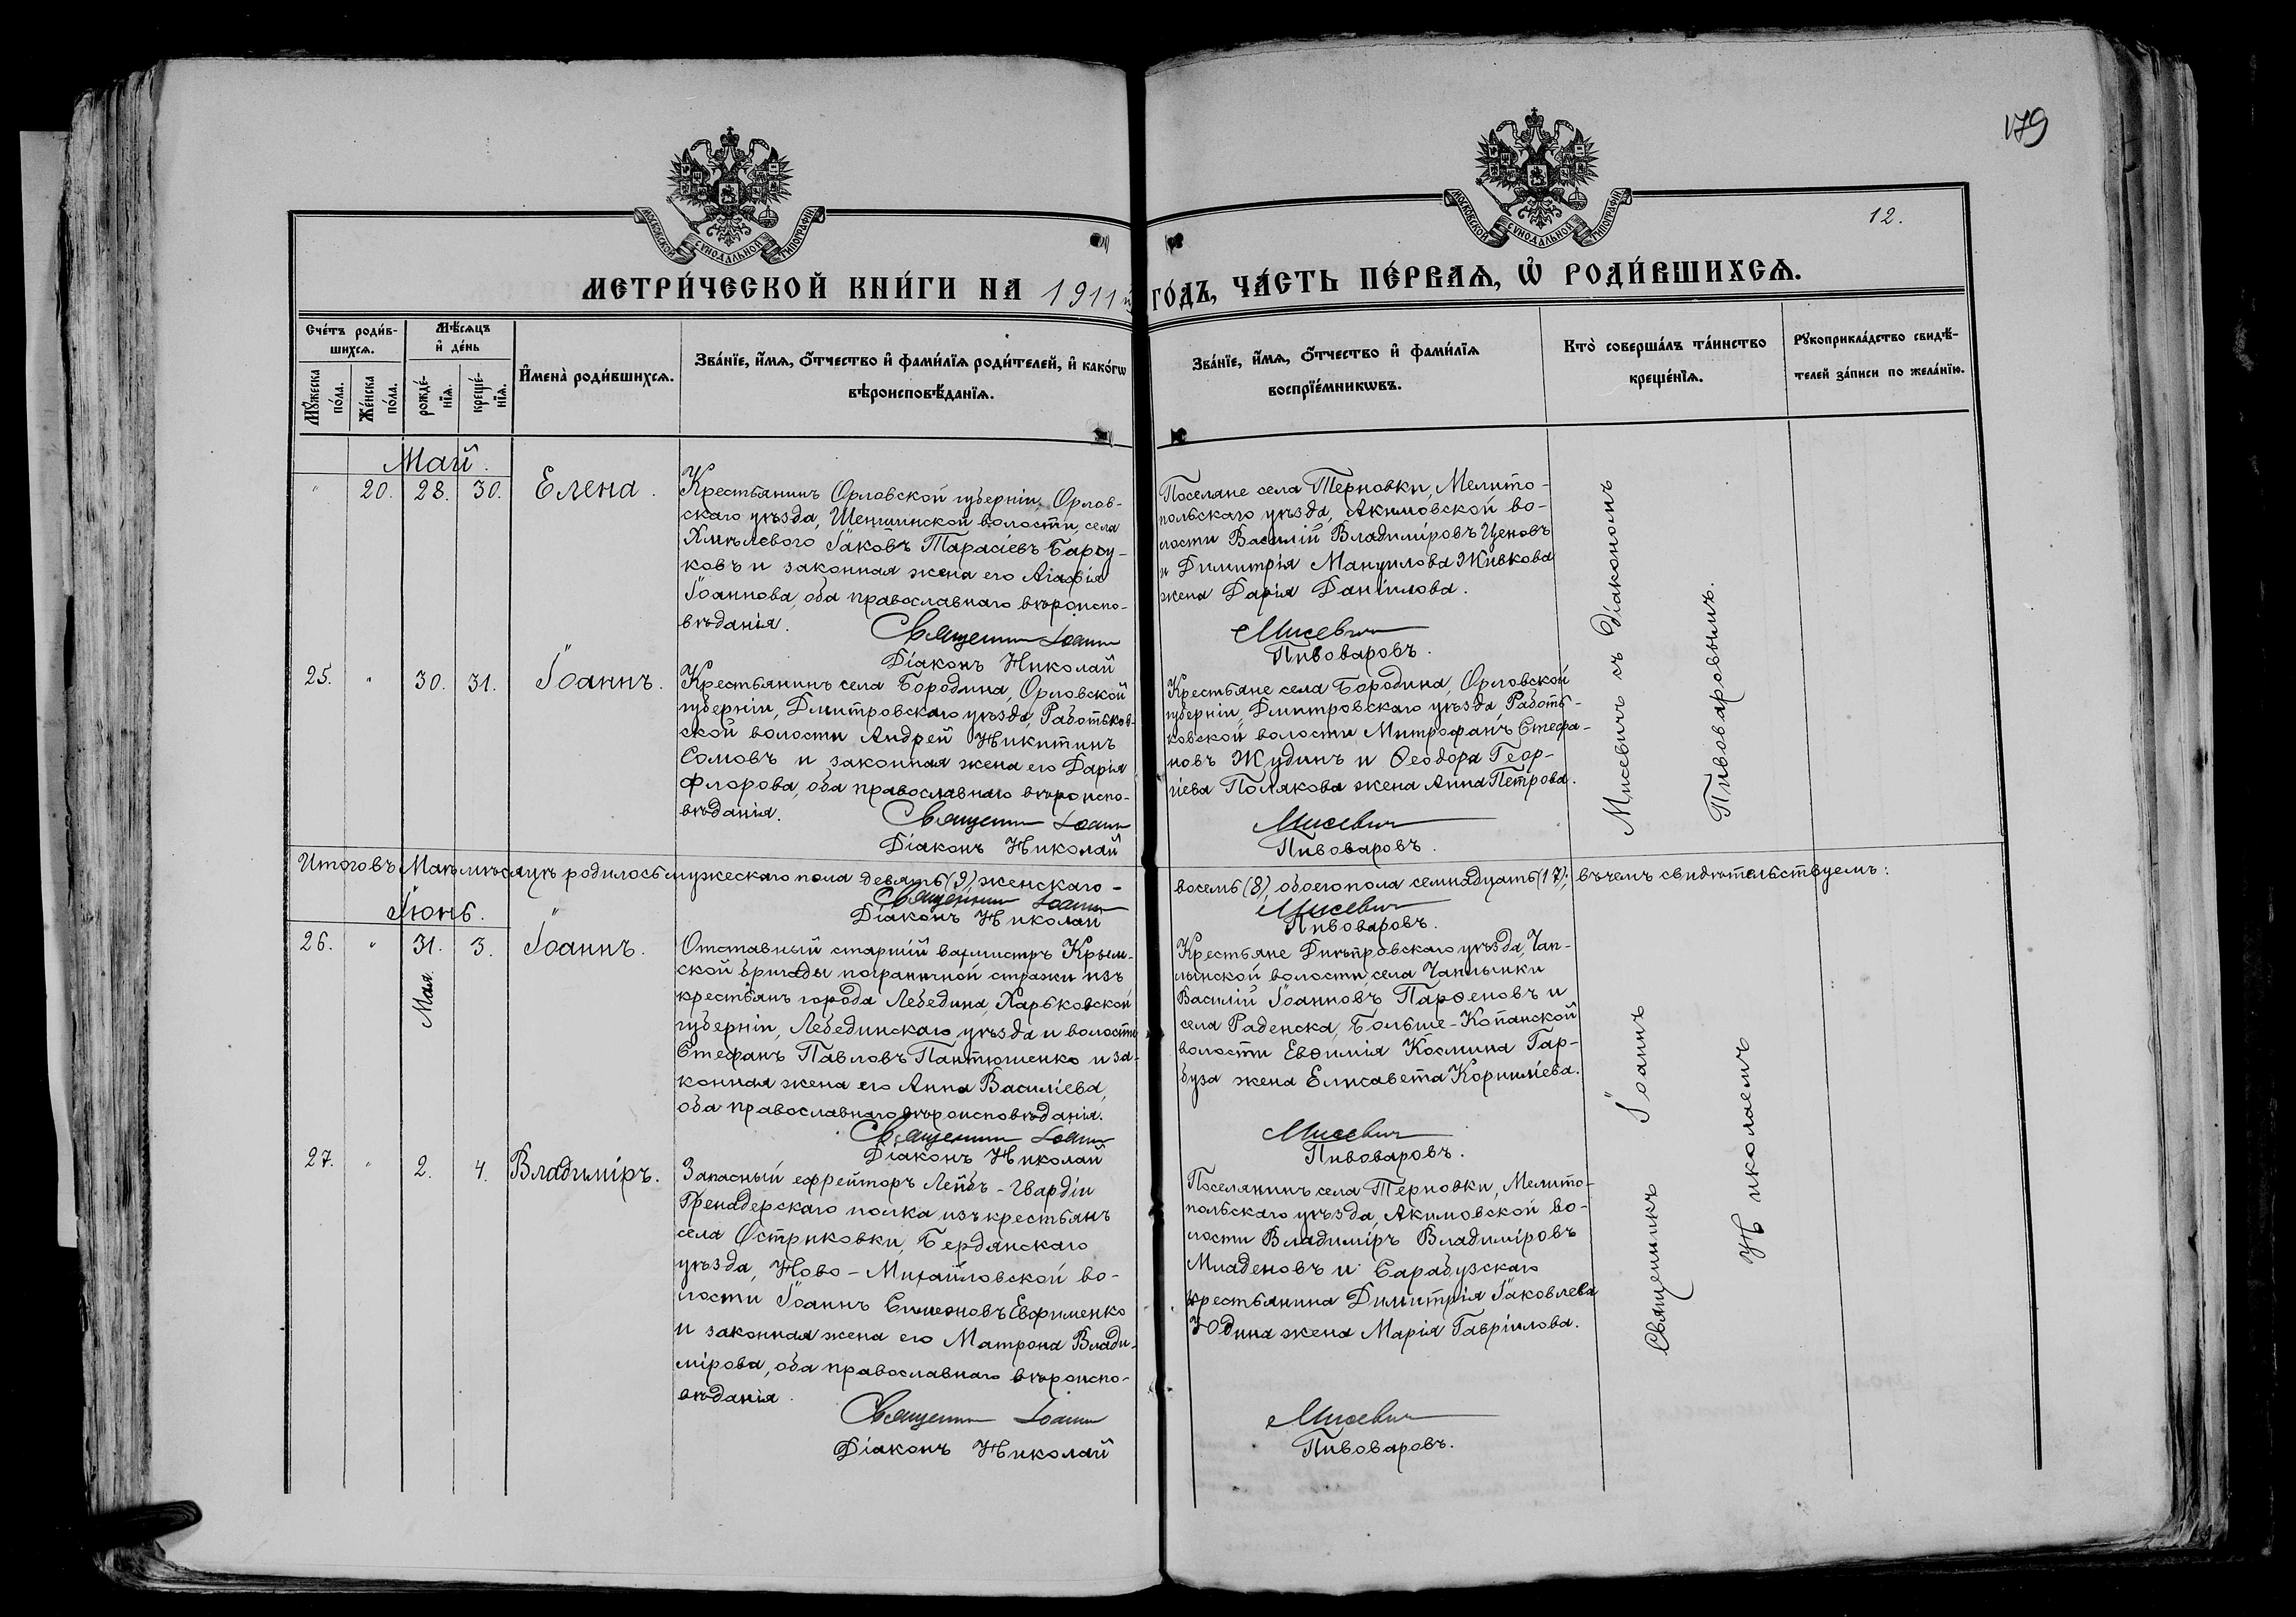 179
12.
МОСКОВСКОЙ СѴНОДАЛЬНОЙ ТИПОГРАФІИ
МОСКОВСКОЙ СѴНОДАЛЬНОЙ ТИПОГРАФІИ
МЕТРИ́ЧЕСКОЙ КНИ́ГИ НА 1911 й ГО́ДЪ, ЧА́СТЬ ПЕ́РВАѦ, Ѡ҆ РОДИ́ВШИХСѦ.
Сче́тъ роди́в-
шихсѧ.
Мѣ́сѧцъ
и҆ де́нь
Мꙋ́жеска
по́ла.
Же́нска
по́ла.
рожде́-
нїѧ.
креще́-
нїѧ.
И҆мена̀ роди́вшихсѧ.
Зва́нїе, и҆́мѧ, ѻ҆́тчество и҆ фами́лїѧ роди́телей, и҆ како́гѡ
вѣроисповѣ́данїѧ.
Зва́нїе, и҆́мѧ, ѻ҆́тчество и҆ фами́лїѧ
воспрїе́мникѡвъ.
Кто̀ соверша́лъ та́инство
креще́нїѧ.
Рꙋкоприкла́дство свидѣ́-
телей за́писи по жела́нїю.
Май.
" 20. 28. 30. Елена.
Крестьянинъ Орловской губерніи, Орлов-
скаго уѣзда, Шеншинской волости, села
Хмѣлевого Іаковъ Тарасіевъ Барсу-
ковъ и законная жена его Агафія
Іоаннова, оба православнаго вѣроиспо-
вѣданія.
Священникъ Іоаннъ
Діаконъ Николай
Поселяне села Терновки, Мелито-
польскаго уѣзда, Акимовской во-
лости Василій Владиміровъ Ценовъ
и Димитрія Мануилова Живкова
жена Дарія Даніилова.
Мисевичъ
Пивоваровъ.
25. " 30. 31. Іоаннъ.
Крестьянинъ села Бородина, Орловской
губерніи, Дмитровскаго уѣзда, Работьков-
ской волости Андрей Никитинъ
Сомовъ и законная жена его Дарія
Флорова, оба православнаго вѣроиспо-
вѣданія.
Священникъ Іоаннъ
Діаконъ Николай
Крестьяне села Бородина, Орловской
губерніи, Дмитровскаго уѣзда, Работь-
ковской волости Митрофанъ Стефа-
новъ Жудинъ и Ѳеодора Геор-
гіева Полякова жена Анна Петрова.
Мисевичъ
Пивоваровъ.
Мисевичъ съ Діакономъ
Пивоваровымъ.
Итого въ Маѣ мѣсяцѣ родилось мужескаго пола девять (9), женскаго -
восемь (8), обоего пола семнадцать (17); въ чемъ свидѣтельствуемъ:
Священникъ Іоаннъ
Діаконъ Николай
Мисевичъ
Пивоваровъ.
Іюнь.
26. " 31. 3. Іоаннъ.
Мая.
Отставный старшій вахмистръ Крым-
ской бригады пограничной стражи изъ
крестьянъ города Лебедина, Харьковской
губерніи, Лебединскаго уѣзда и волости
Стефанъ Павловъ Пантюшенко и за-
конная жена его Анна Василіева,
оба православнаго вѣроисповѣданія.
Священникъ Іоаннъ
Діаконъ Николай
Крестьяне Днѣпровскаго уѣзда, Чап-
лынской волости, села Чаплынки
Василій Іоанновъ Парѳеновъ и
села Раденска, Больше-Копанской
волости Евѳимія Космина Гар-
буза жена Елисавета Корниліева.
Мисевичъ
Пивоваровъ.
27. " 2. 4. Владиміръ.
Запасный ефрейторъ Лейбъ-Гвардіи
Гренадерскаго полка, изъ крестьянъ
села Остриковки, Бердянскаго
уѣзда, Ново-Михайловской во-
лости Іоаннъ Симеоновъ Евфименко
и законная жена его Матрона Влади-
мірова, оба православнаго вѣроиспо-
вѣданія.
Священникъ Іоаннъ
Діаконъ Николай
Поселянинъ села Терновки, Мелито-
польскаго уѣзда, Акимовской во-
лости Владиміръ Владиміровъ
Младеновъ и Сарабузскаго
крестьянина Димитрія Іаковлева
Юдина жена Марія Гавріилова.
Мисевичъ
Пивоваровъ.
Священникъ Іоаннъ
Николаемъ